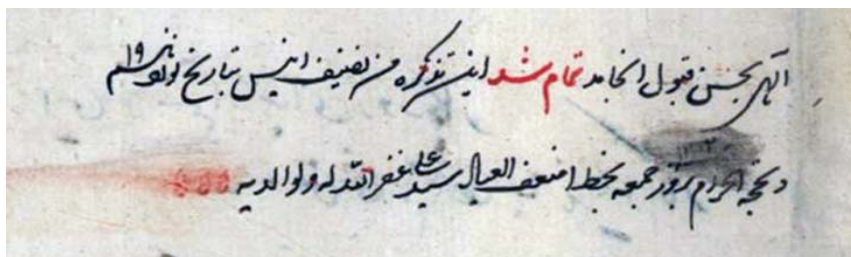 الهی بحسن قبول انجامد تمام شد این تذکره من تصنیف انیس بتاریخ
ذیحجه الحرام بروز جمعه بخط اضعف العباد سید علی غفر الله له ولوالدیه